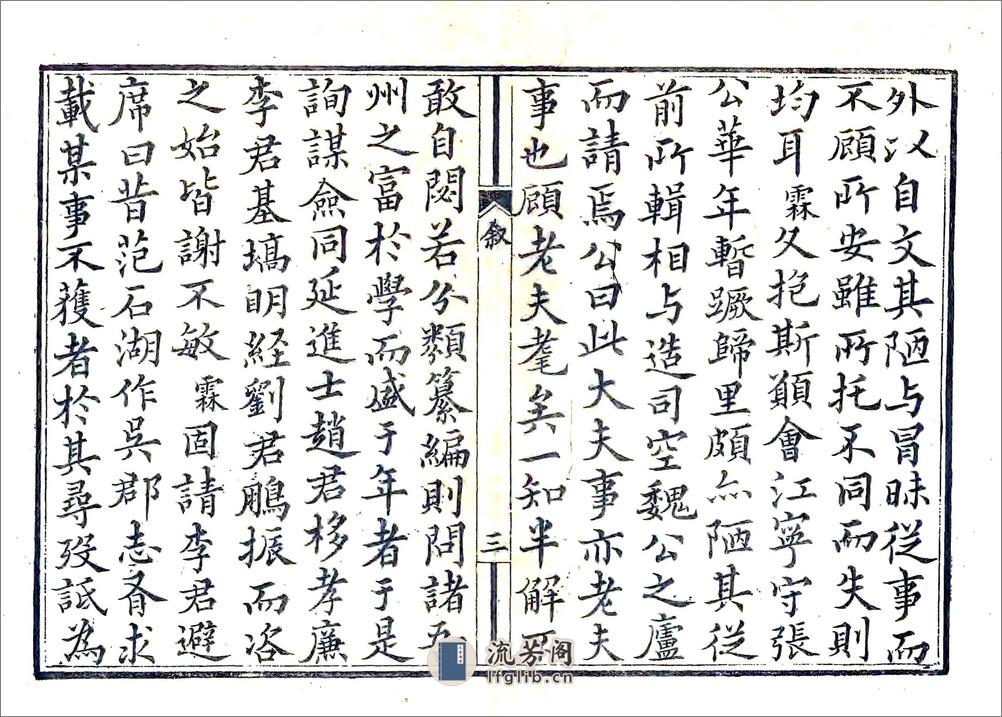 外以自文其陋与冒昧從事而
不顧所安雖所托不同而失則
均耳霖久抱斯願會江寧守張
公華年暫蹶歸里頗亦陋其從
前所輯相与造司空魏公之廬
而請焉公曰此大夫事亦老夫
事也顧老夫耄矣一知半解不
敘
三
敢自閟若分類纂編則問諸
州之富於學而盛于年者于是
詢謀僉同延進士趙君移孝廉
李君基塙明經劉君鵬振而咨
之始皆謝不敏霖固請李君避
席曰昔范石湖作吳郡志有求
載某事不獲者於其尋歿詆為
流芳阁
lfglib.cn